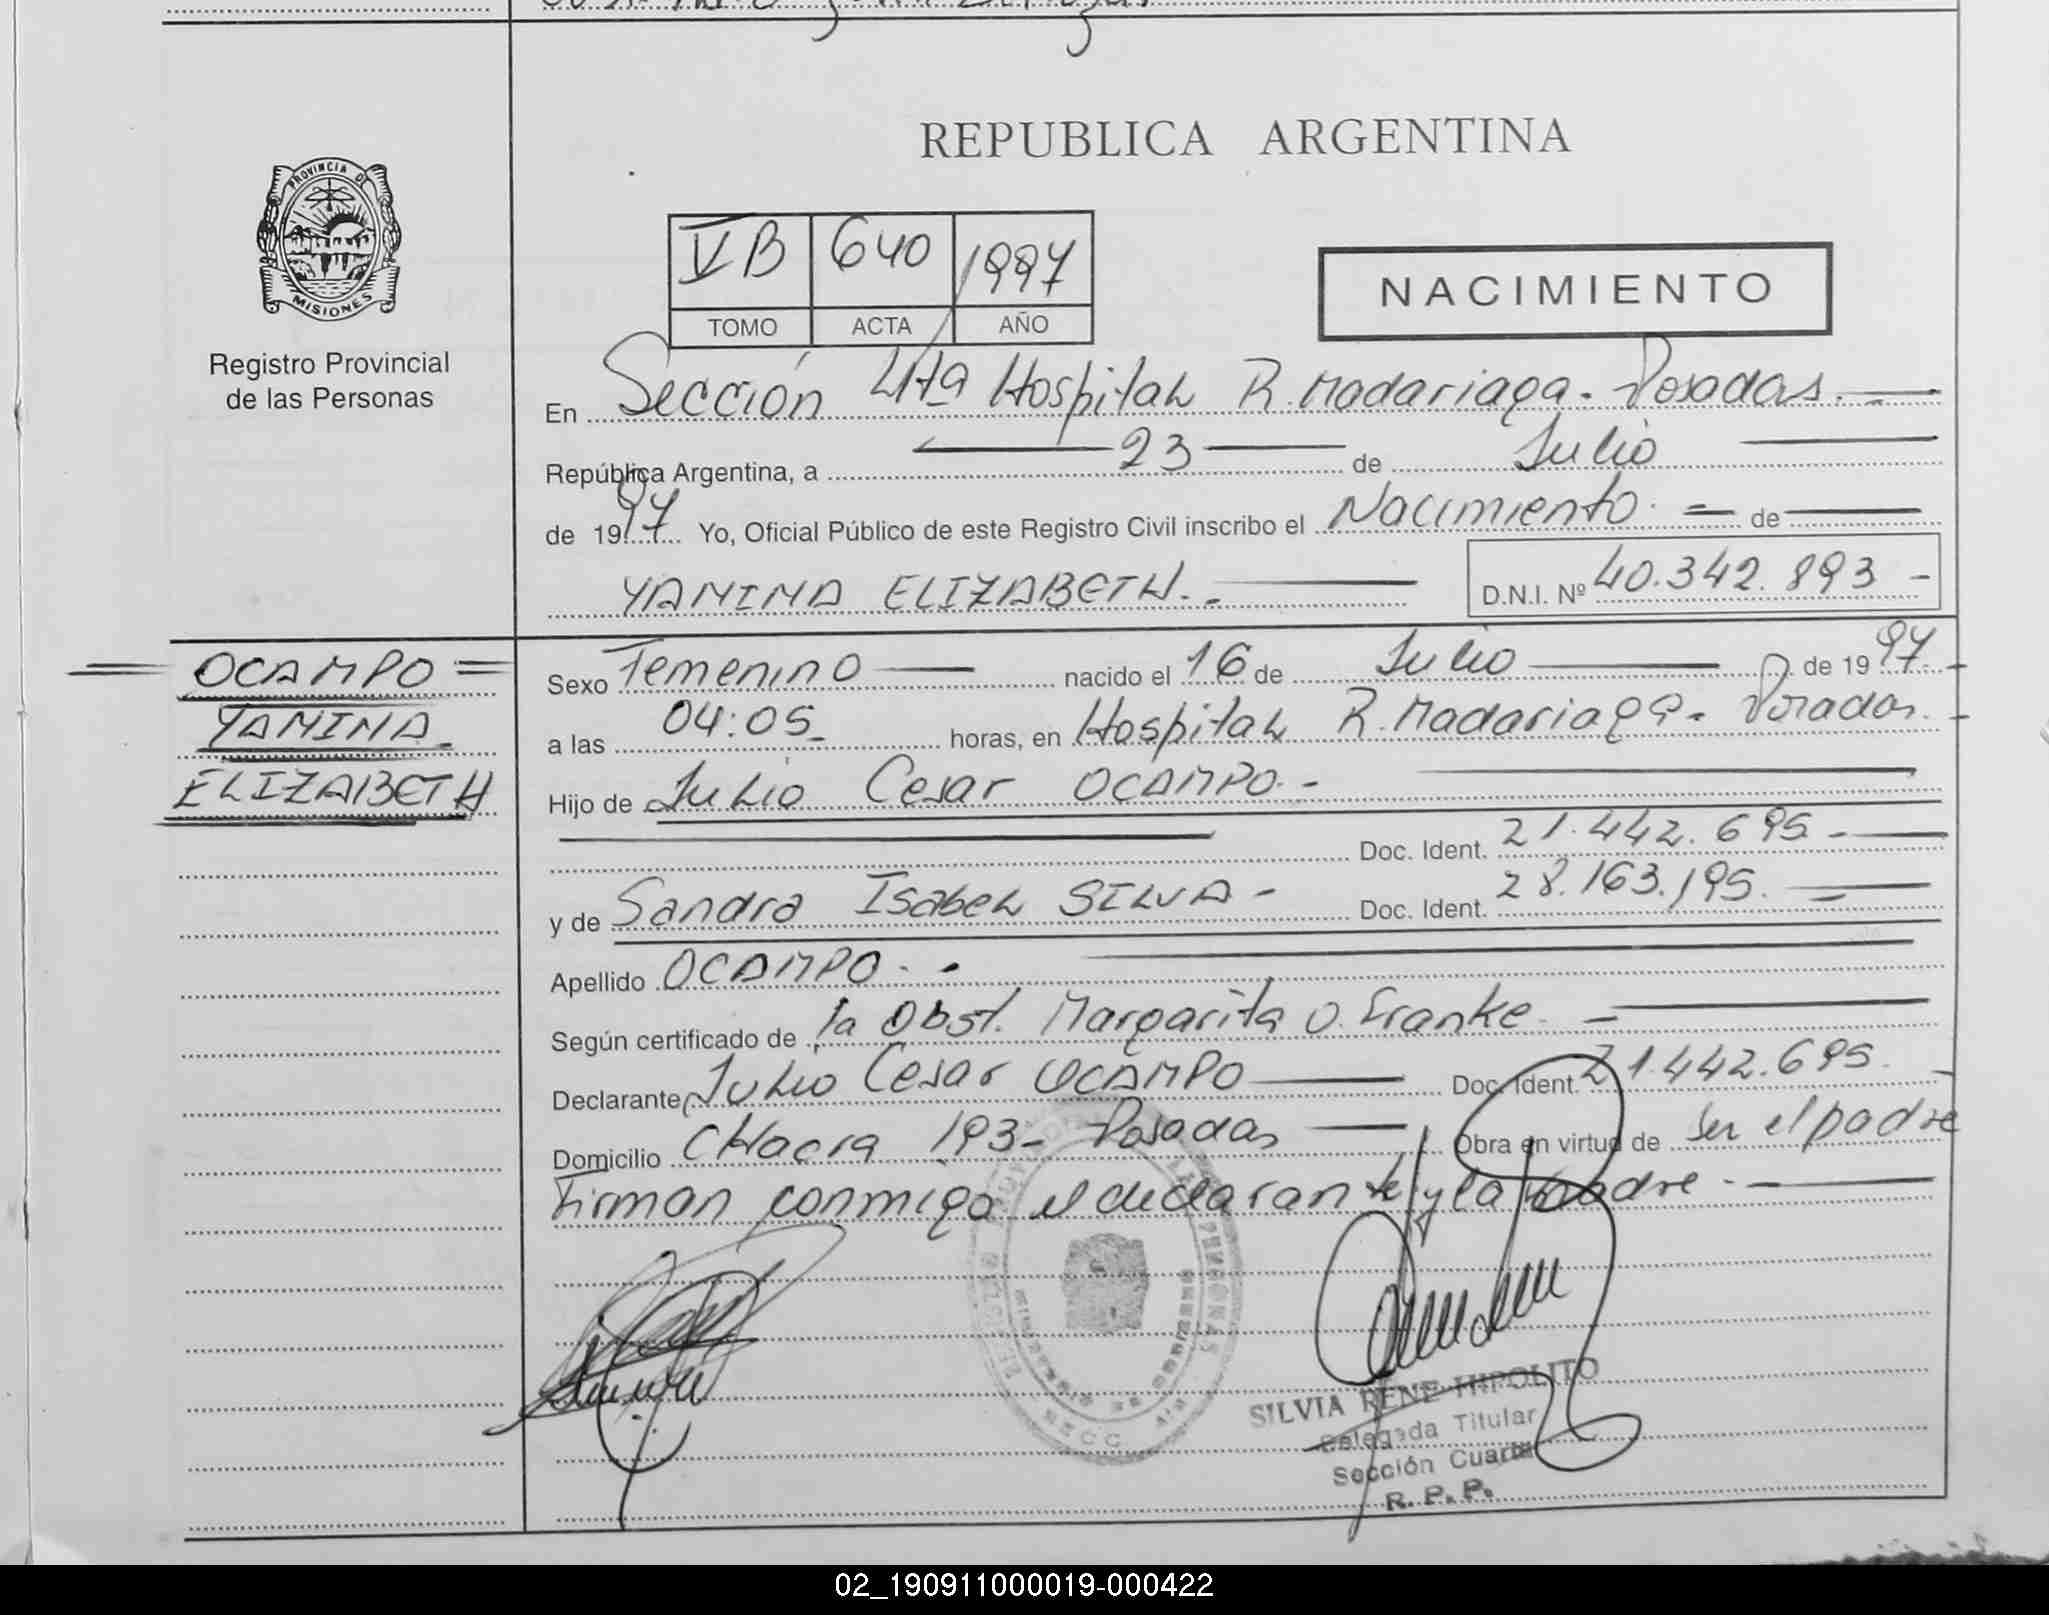 REPUBLICA ARGENTINA
PROVINCIA DE
MISIONES
Registro Provincial
de las Personas
VB 640 1997
TOMO ACTA AÑO
NACIMIENTO
En Sección 4ta Hospital R. Madariaga - Posadas.
República Argentina, a 23 de Julio
de 1997 Yo, Oficial Público de este Registro Civil inscribo el Nacimiento de
YANINA ELIZABETH. D.N.I. Nº 40.342.893
OCAMPO
YANINA
ELIZABETH
Sexo Femenino nacido el 16 de Julio de 1997
a las 04:05 horas, en Hospital R. Madariaga - Posadas.
Hijo de Julio Cesar OCAMPO.
Doc. Ident. 21.442.695
y de Sandra Isabel SILVA - Doc. Ident. 28.163.195.
Apellido OCAMPO.
Según certificado de la Obst. Margarita O. Franke
Declarante Julio Cesar OCAMPO Doc. Ident. 21.442.695.
Domicilio CHacra 193- Posadas Obra en virtud de Ser el padre
Firman conmigo el declarante y la madre
SILVIA RENE HIPOLITO
Delegada Titular
Sección Cuarta
R. P. P.
02_190911000019-000422